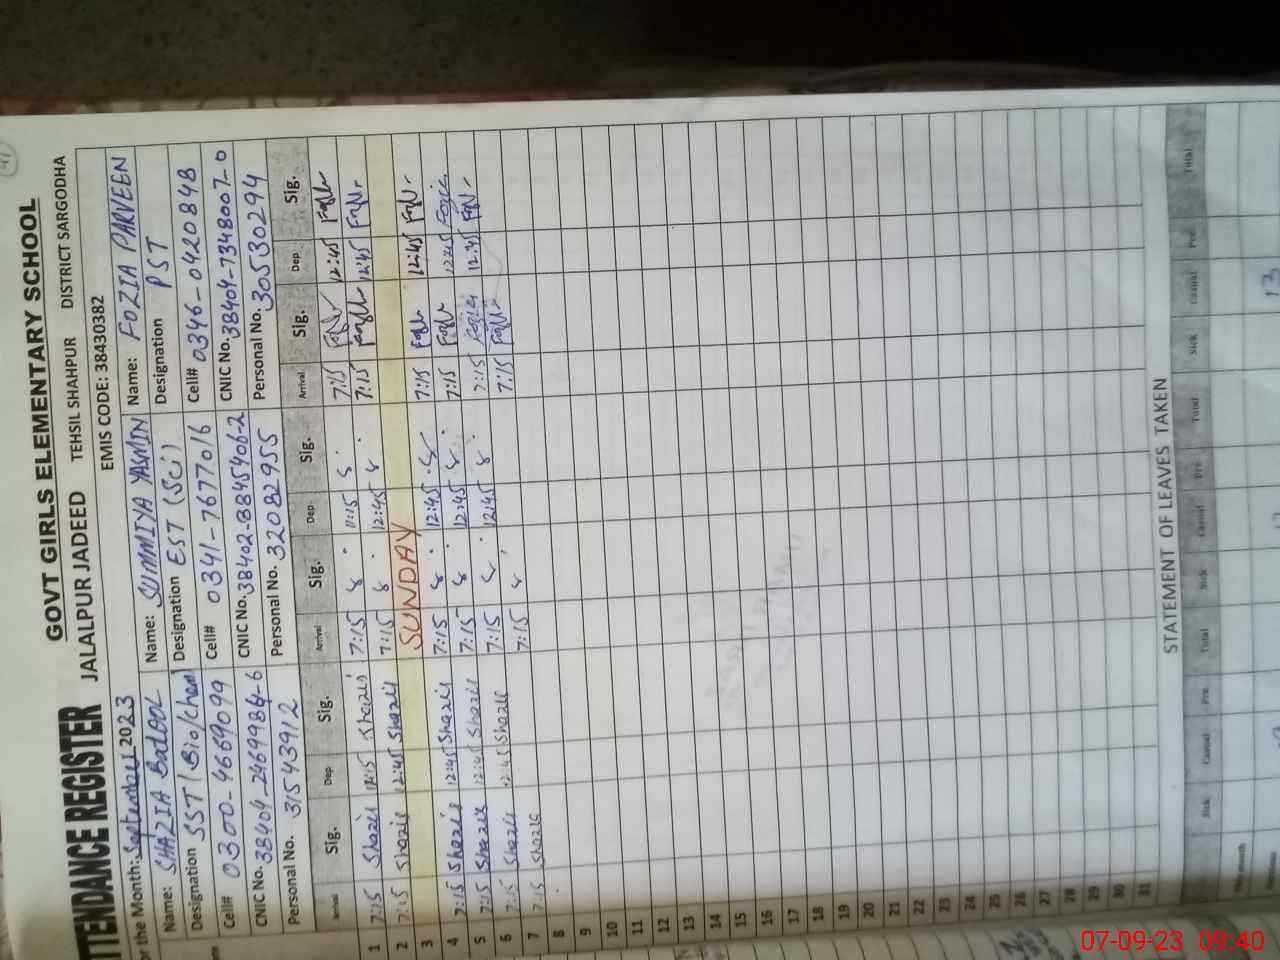 41
GOVT GIRLS ELEMENTARY SCHOOL
TTENDANCE REGISTER JALALPUR JADEED TEHSIL SHAHPUR DISTRICT SARGODHA
or the Month: September 2023 EMIS CODE: 38430382
Name: SHAZIA Batool Name: SUMMIYA YASMIN Name: FOZIA PARVEEN
Designation SST (Bio/chem) Designation EST (Sci) Designation PST
Cell# 0300-4669099 Cell# 0341-7677016 Cell# 0346-0420848
CNIC No. 38404-2469984-6 CNIC No. 38402-8845406-2 CNIC No. 38404-7348007-0
Personal No. 31543912 Personal No. 32082955 Personal No. 30530294
Arrival Sig. Dep Sig. Arrival Sig. Dep Sig. Arrival Sig. Dep Sig.
1 7:15 Shazie 12:15 Shazie 7:15 11:15 7:15 12:45
2 7:15 Shazie 12:45 Shazie 7:15 12:45 7:15 12:45
3 SUNDAY
4 7:15 Shazie 12:45 Shazie 7:15 12:45 7:15 12:45
5 7:15 Shazie 12:45 Shazie 7:15 12:45 7:15 12:45
6 7:15 Shazie 12:45 Shazie 7:15 12:45 7:15 12:45
7 7:15 Shazie 7:15 7:15
8
9
10
11
12
13
14
15
16
17
18
19
20
21
22
23
24
25
26
27
28
29
30
31
STATEMENT OF LEAVES TAKEN
Sick Casual Pre. Total Sick Casual Pre. Total Sick Casual Pre. Total
13
07-09-23 09:40